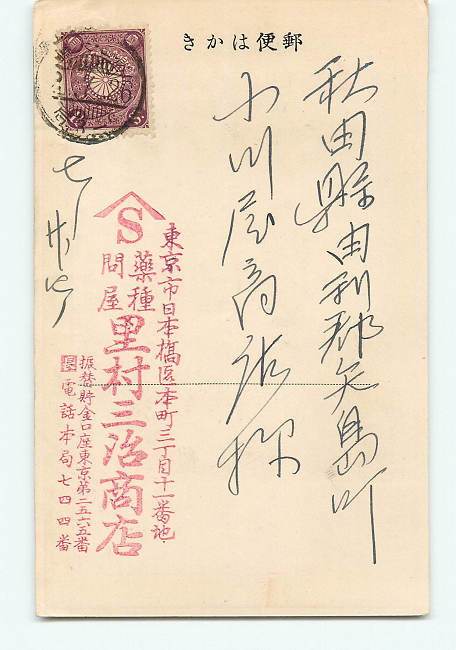 郵便はかき
秋田縣由利郡矢島町
小川屋商店様
東京市日本橋區本町三丁目十一番地
S
藥種
問屋
里村三治商店
振替貯金口座東京第二五六五番
電話本局七四四番